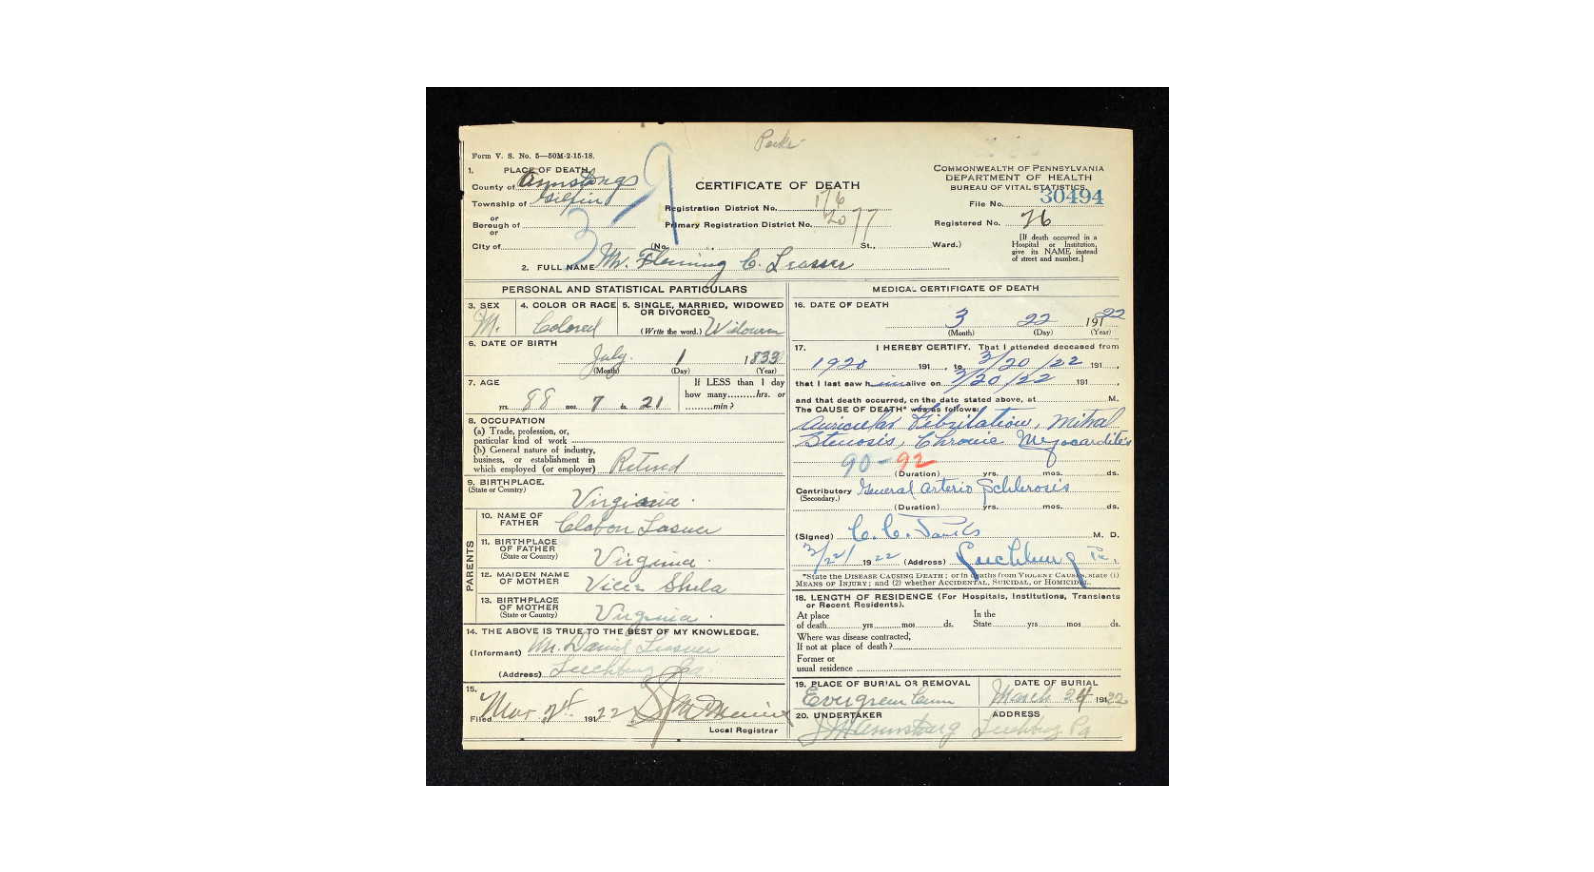 Parks
Form V. S. No. 5—50M-2-15-18.
1. PLACE OF DEATH,
County of Armstrong
Township of Gilpin
or
Borough of
or
City of
37
CERTIFICATE OF DEATH
Registration District No. 176
Primary Registration District No. 2077
(No. St., Ward.)
COMMONWEALTH OF PENNSYLVANIA
DEPARTMENT OF HEALTH
BUREAU OF VITAL STATISTICS
File No. 30494
Registered No. 76
[If death occurred in a
Hospital or Institution,
give its NAME instead
of street and number.]
2. FULL NAME Mr. Fleming C.
PERSONAL AND STATISTICAL PARTICULARS
3. SEX
M.
4. COLOR OR RACE
Colored
5. SINGLE, MARRIED, WIDOWED
OR DIVORCED
(Write the word.)
6. DATE OF BIRTH
July 1 1833
(Month) (Day) (Year)
7. AGE
88 yrs. 7 mos. 21 ds.
If LESS than 1 day
how many hrs. or
min?
8. OCCUPATION
(a) Trade, profession, or,
particular kind of work
(b) General nature of industry,
business, or establishment in
which employed (or employer) Retired
9. BIRTHPLACE.
(State or Country)
Virginia.
10. NAME OF
FATHER
PARENTS
11. BIRTHPLACE
OF FATHER
(State or Country)
Virginia.
12. MAIDEN NAME
OF MOTHER
13. BIRTHPLACE
OF MOTHER
(State or Country)
Virginia.
14. THE ABOVE IS TRUE TO THE BEST OF MY KNOWLEDGE.
(Informant) Mr. Daniel
(Address) Leechburg Pa.
15.
Filed Mar 191 22
Local Registrar
MEDICAL CERTIFICATE OF DEATH
16. DATE OF DEATH
3 22 1922
(Month) (Day) (Year)
17. I HEREBY CERTIFY, That I attended deceased from
1920 191 , to 3/20/22 191 ,
that I last saw him alive on 3/20/22 191 ,
and that death occurred, on the date stated above, at M.
The CAUSE OF DEATH* was as follows:
Auricular Fibrilation, Mitral
Stenosis, Chronic Myocarditis
90-92
(Duration) yrs. mos. ds.
Contributory General Arterio Schlerosis
(Secondary.)
(Duration) yrs. mos. ds.
(Signed) C. C. Parks M. D.
3/22/ 1922 (Address) Leechburg Pa.
*State the DISEASE CAUSING DEATH; or in deaths from VIOLENT CAUSES, state (1)
MEANS OF INJURY; and (2) whether ACCIDENTAL, SUICIDAL, or HOMICIDAL.
18. LENGTH OF RESIDENCE (For Hospitals, Institutions, Transients
or Recent Residents).
At place In the
of death yrs mos ds. State yrs mos ds.
Where was disease contracted,
If not at place of death?
Former or
usual residence
19. PLACE OF BURIAL OR REMOVAL
Evergreen Cem
DATE OF BURIAL
March 24 1922
20. UNDERTAKER
J M Armstrong
ADDRESS
Leechburg Pa